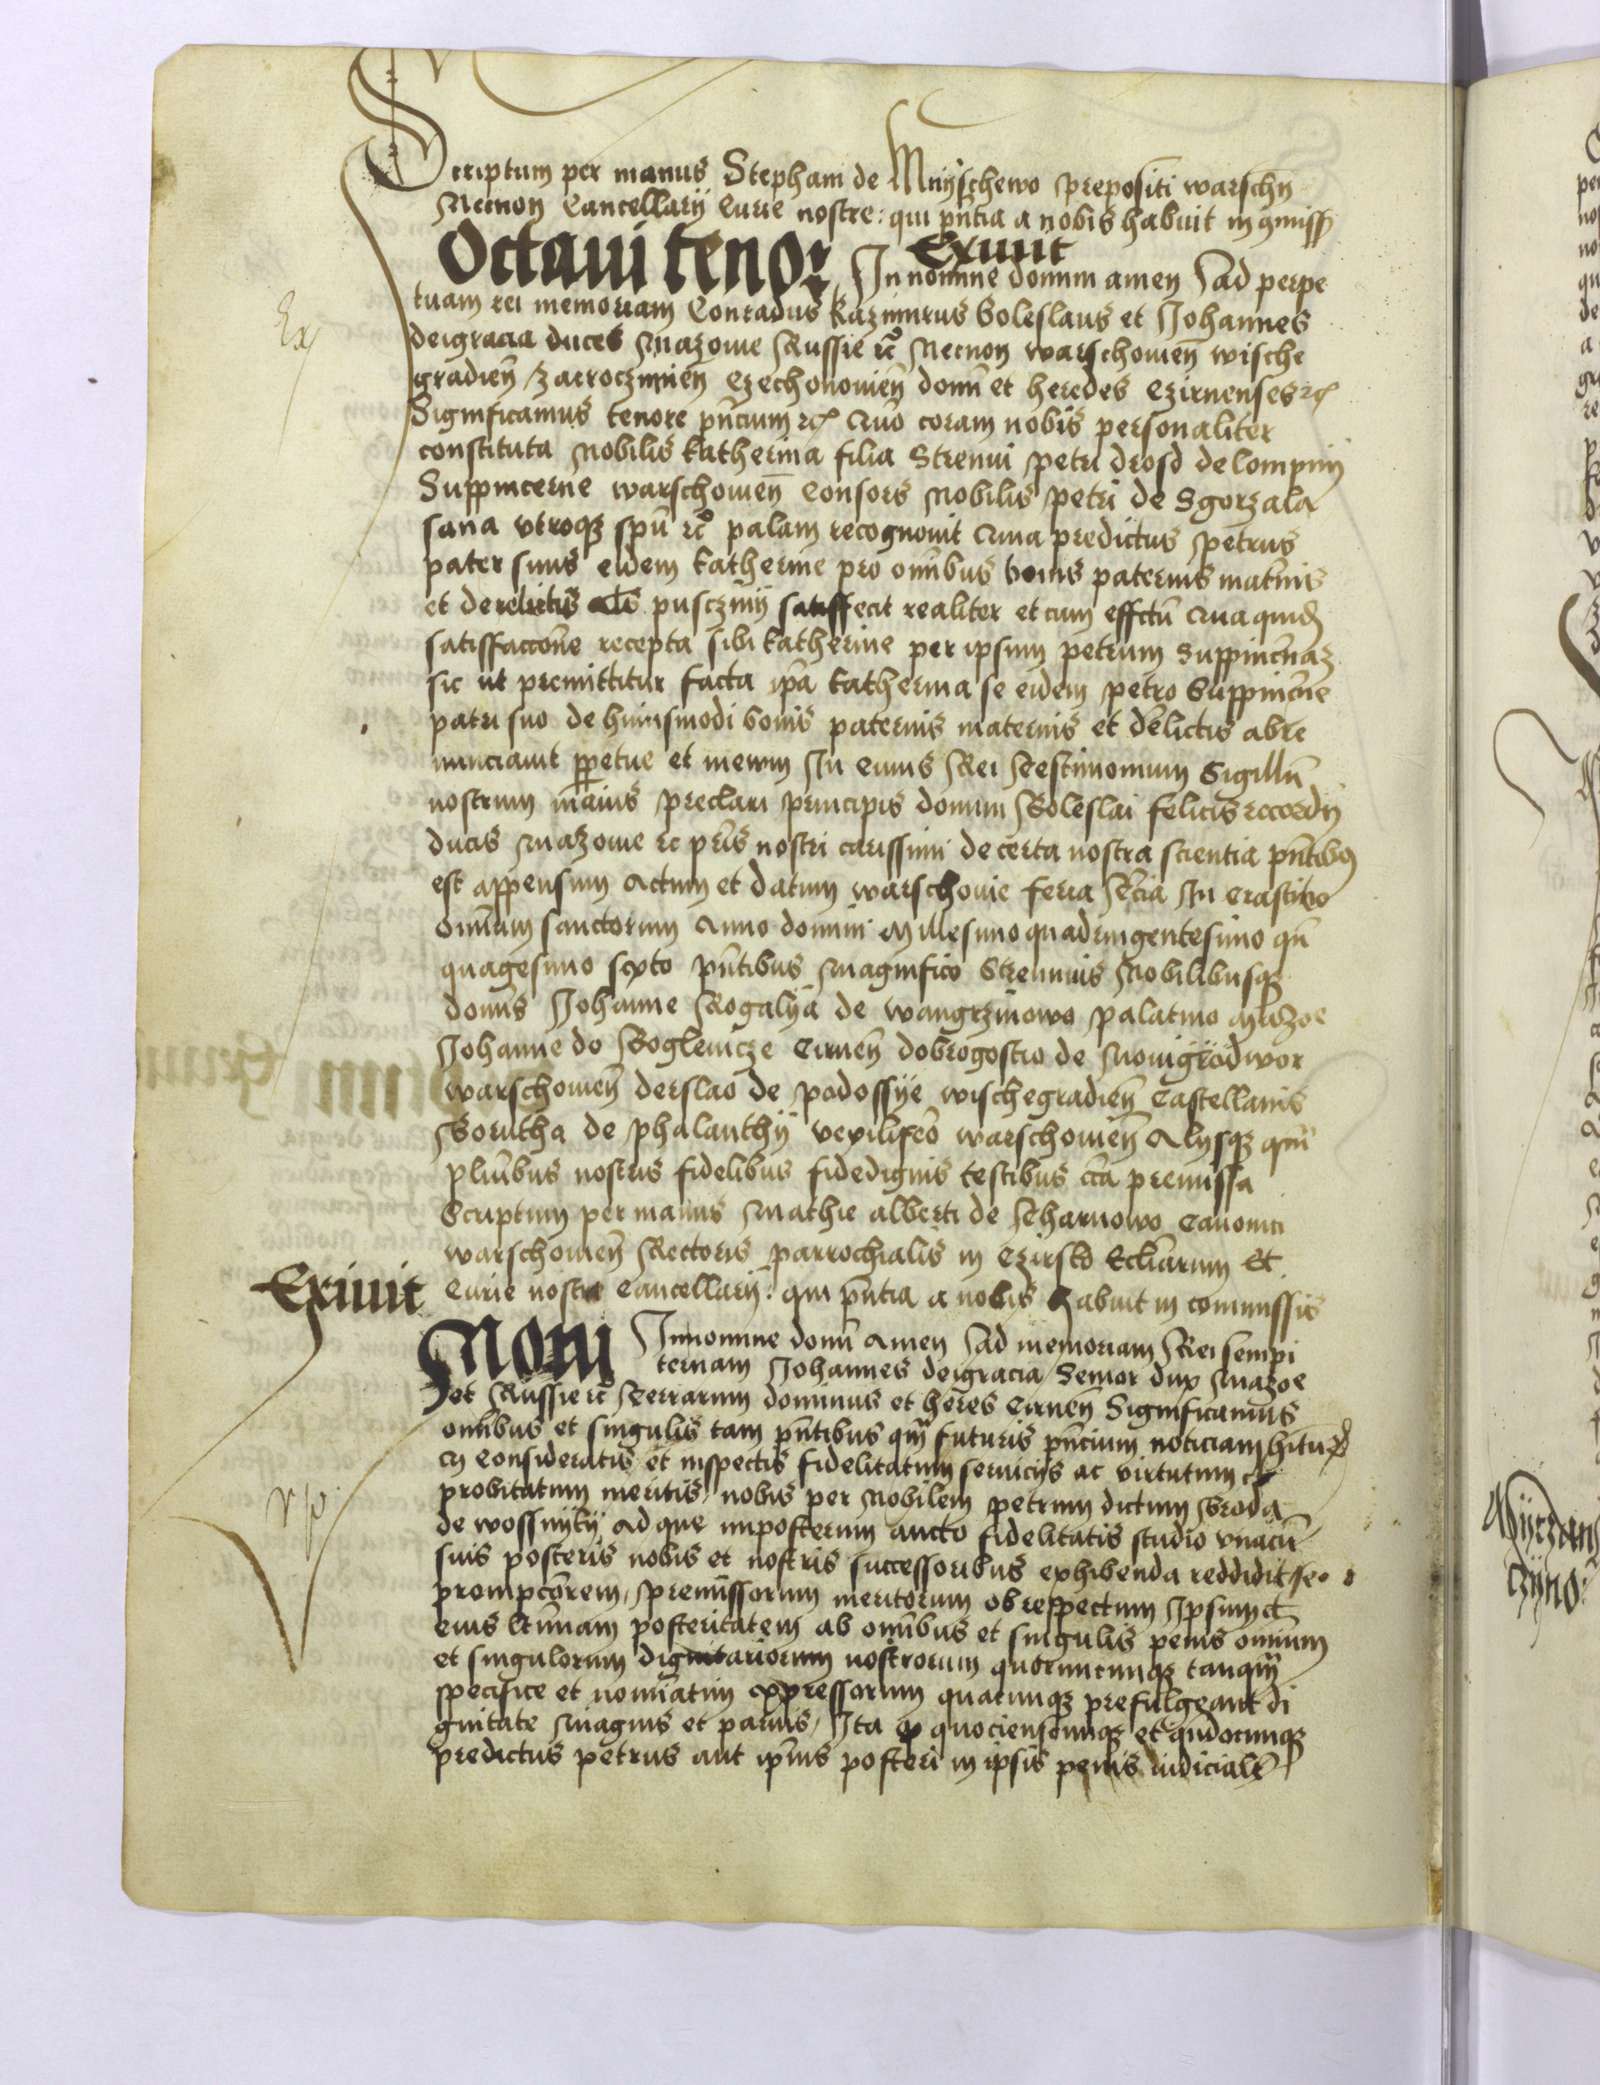 Scriptum per manus Stephani de Mnyschewo prepositi warschn
Necnon Cancellarij Curie nostre: qui pn̄tia a nobis habuit in 9miss
Exiuit
Octaui tenor In nomine domini amen Ad perpe
Ex
tuam rei memoriam Conradus kazimirus Boleslaus et Johannes
deigracia duces Mazouie Russie rc̄ Necnon warschouien̄ wische
gradien̄ zacroczimien̄ Czechonouien̄ domī et heredes Czirnenses rc̄
Significamus tenore pn̄cium rc̄ Quō coram nobis personaliter
constituta Nobilis katherina filia Strenui petri drosd de lompnij
Suppincerne warschouien̄ Consors Nobilis petri de Sgorzala
sana vtroqz spū rc̄ palam recognouit Quia predictus petrus
pater suus eidem katherine pro om̄ibus bonis paternis mat̄nis
et derelictis pusczinij satisffecit realiter et cum effectū Qua quid
satisffaccōne recepta sibi katherine per ipsum petrum Suppincn̄az
sic ut premittitur facta ip̄a katherina se eidem petro Suppincn̄e
patri suo de huiusmodi bonis paternis maternis et d̄elictis abre
nunciauit ppetue et in ewm In cuius Rei Testimonium Sigillū
nostrum maius preclari principis domini Boleslai felicis recordij
ducis Mazouie rc pr̄is nostri carissimi de certa nostra scientia pn̄tibus
est appensum Actum et datum warschouie feria t̄cia In crastino
om̄ium sanctorum Anno domini Millesimo quadringentesimo qn̄
quagesimo sexto pn̄tibus Magnifico Strenuis Nobilibusqz
domīs Johanne Rogalya de wangrzinowo palatino Mazoe
Johanne do Rogleuicze Cirnen̄ dobrogostio de Nouigrodwor
warschouien̄ derslao de podossye wischegradien̄ Castellanis
Borutha de phalanthij vexilifero warschouien̄ Alijsqz qm̄
plīibus nostris fidelibus fidedignis testibus cc̄a premissa
Scriptum per manus Mathie alberti de Tharnowo Canonici
warschouien̄ Rectoris parrochialis in Czirsko Eccl̄iarum Et
Exiuit
Curie nostre Cancellarij: qui pn̄tia a nobis habuit in commissis
Noni In nomine domī Amen Ad memoriam Rei sempi
ternam Johannes deigracia Senior dux Mazoe
et Russie rc̄ Terrarum dominus et heres Cirnen̄ Significamus
om̄ibus et singulis tam pn̄tibus qm̄ futuris pn̄cium noticiam hitur
Consideratis et inspectis fidelitatum seruicijs ac virtutum
probitatum meritis nobis per Nobilem petrum dictum Broda
de wossinylij Ad que imposterum aucto fidelitatis studio vnacū
suis posteris nobis et nostris successoribus exhibenda reddidit se
prompciorem, premissorum meritorum ob respectum Ipsum et
eius lt̄imam posteritatem ab om̄ibus et singulis penis omnium
et singulorum dignitariorum nostrorum quorumcunqz tanqm̄
specifice et nominatim expressorum quacunqz prefulgeant di
gnitate Magnis et paruis, Ita quocienscunqz et qn̄docunqz
predictus petrus aut ip̄ius posteri in ipsis penis iudicialit̄